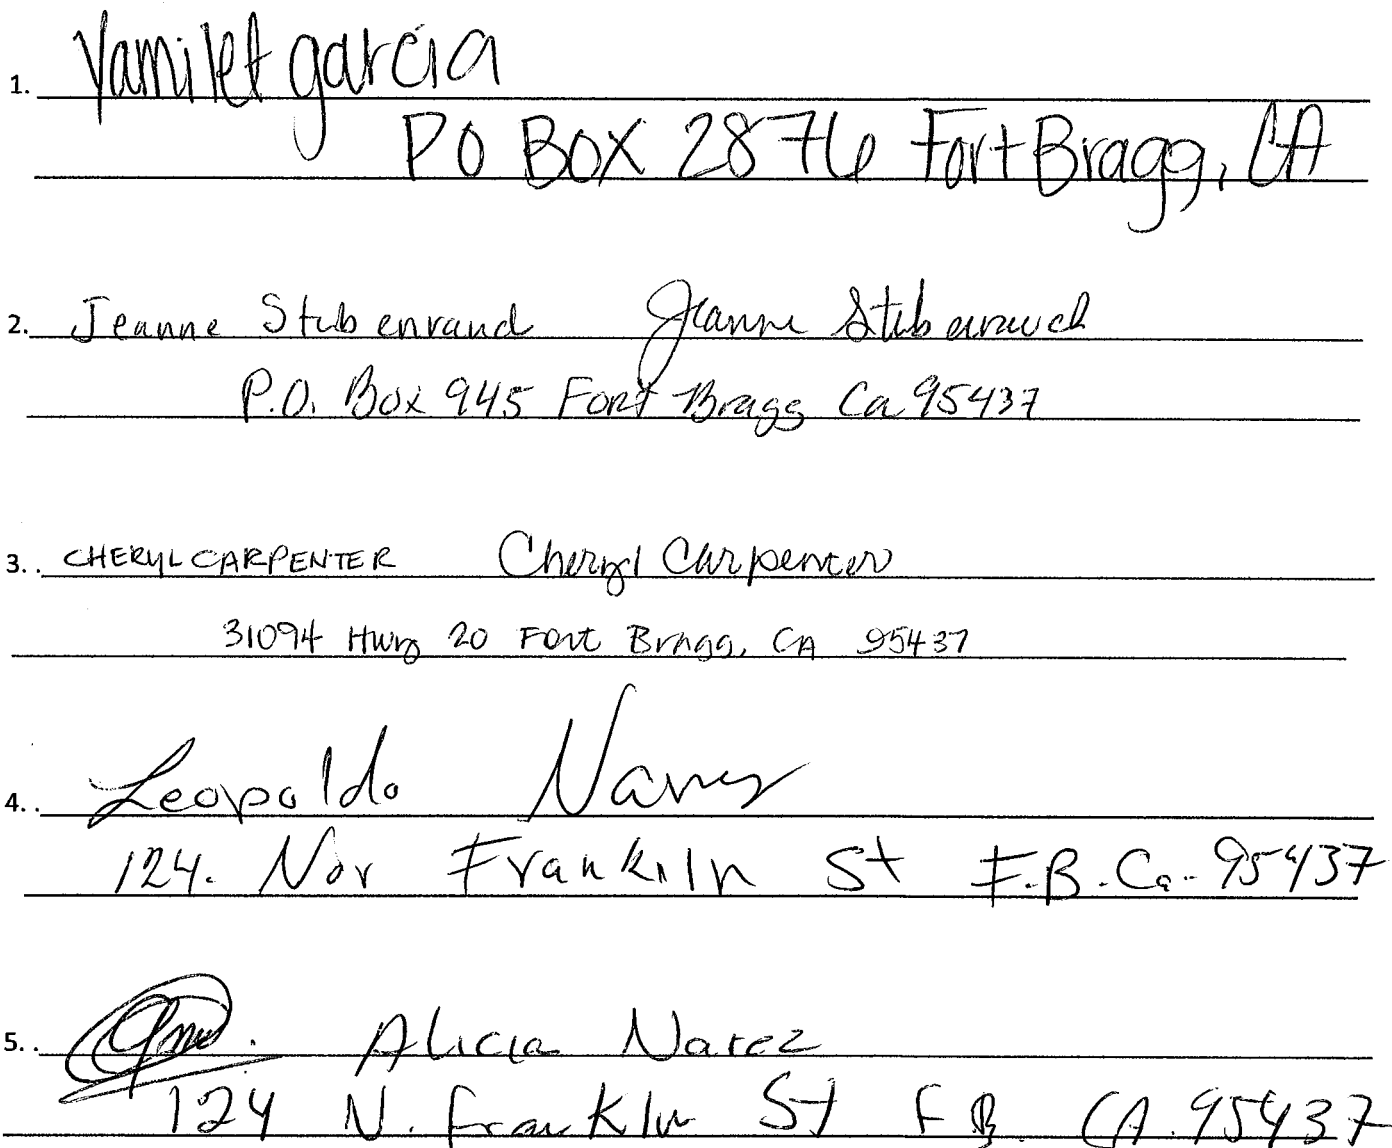 1. Yamilet garcia
PO Box 2876 Fort Bragg, CA
2. Jeanne Stubenraud Jeanne Stubenrauch
P.O. Box 945 Fort Bragg Ca 95437
3. . CHERYL CARPENTER Cheryl Carpenter
31094 Hwy 20 Fort Bragg, CA 95437
4. . Leopoldo
124. Nor Franklin St F.B. Ca. 95437
5. . Alicia Narez
124 N. Franklin St F.B. CA. 95437